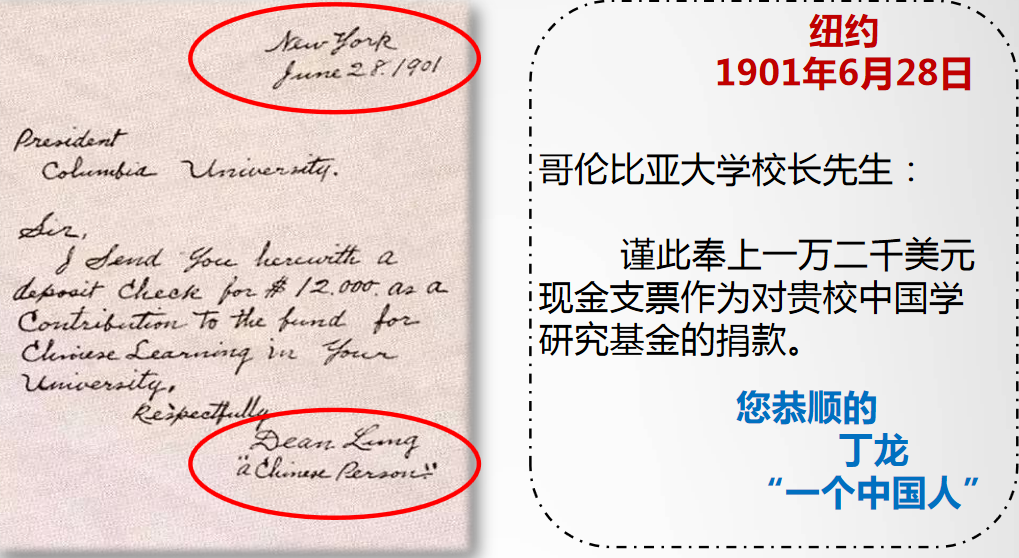 New York
June 28. 1901
President
Columbia University.
Sir,
I Send You herewith a
deposit Check for $ 12.000. as a
Contribution to the fund for
Chinese Learning in Your
University.
Respectfully
Dean Lung
"a Chinese Person."
纽约
1901年6月28日
哥伦比亚大学校长先生：
谨此奉上一万二千美元
现金支票作为对贵校中国学
研究基金的捐款。
您恭顺的
丁龙
“一个中国人”